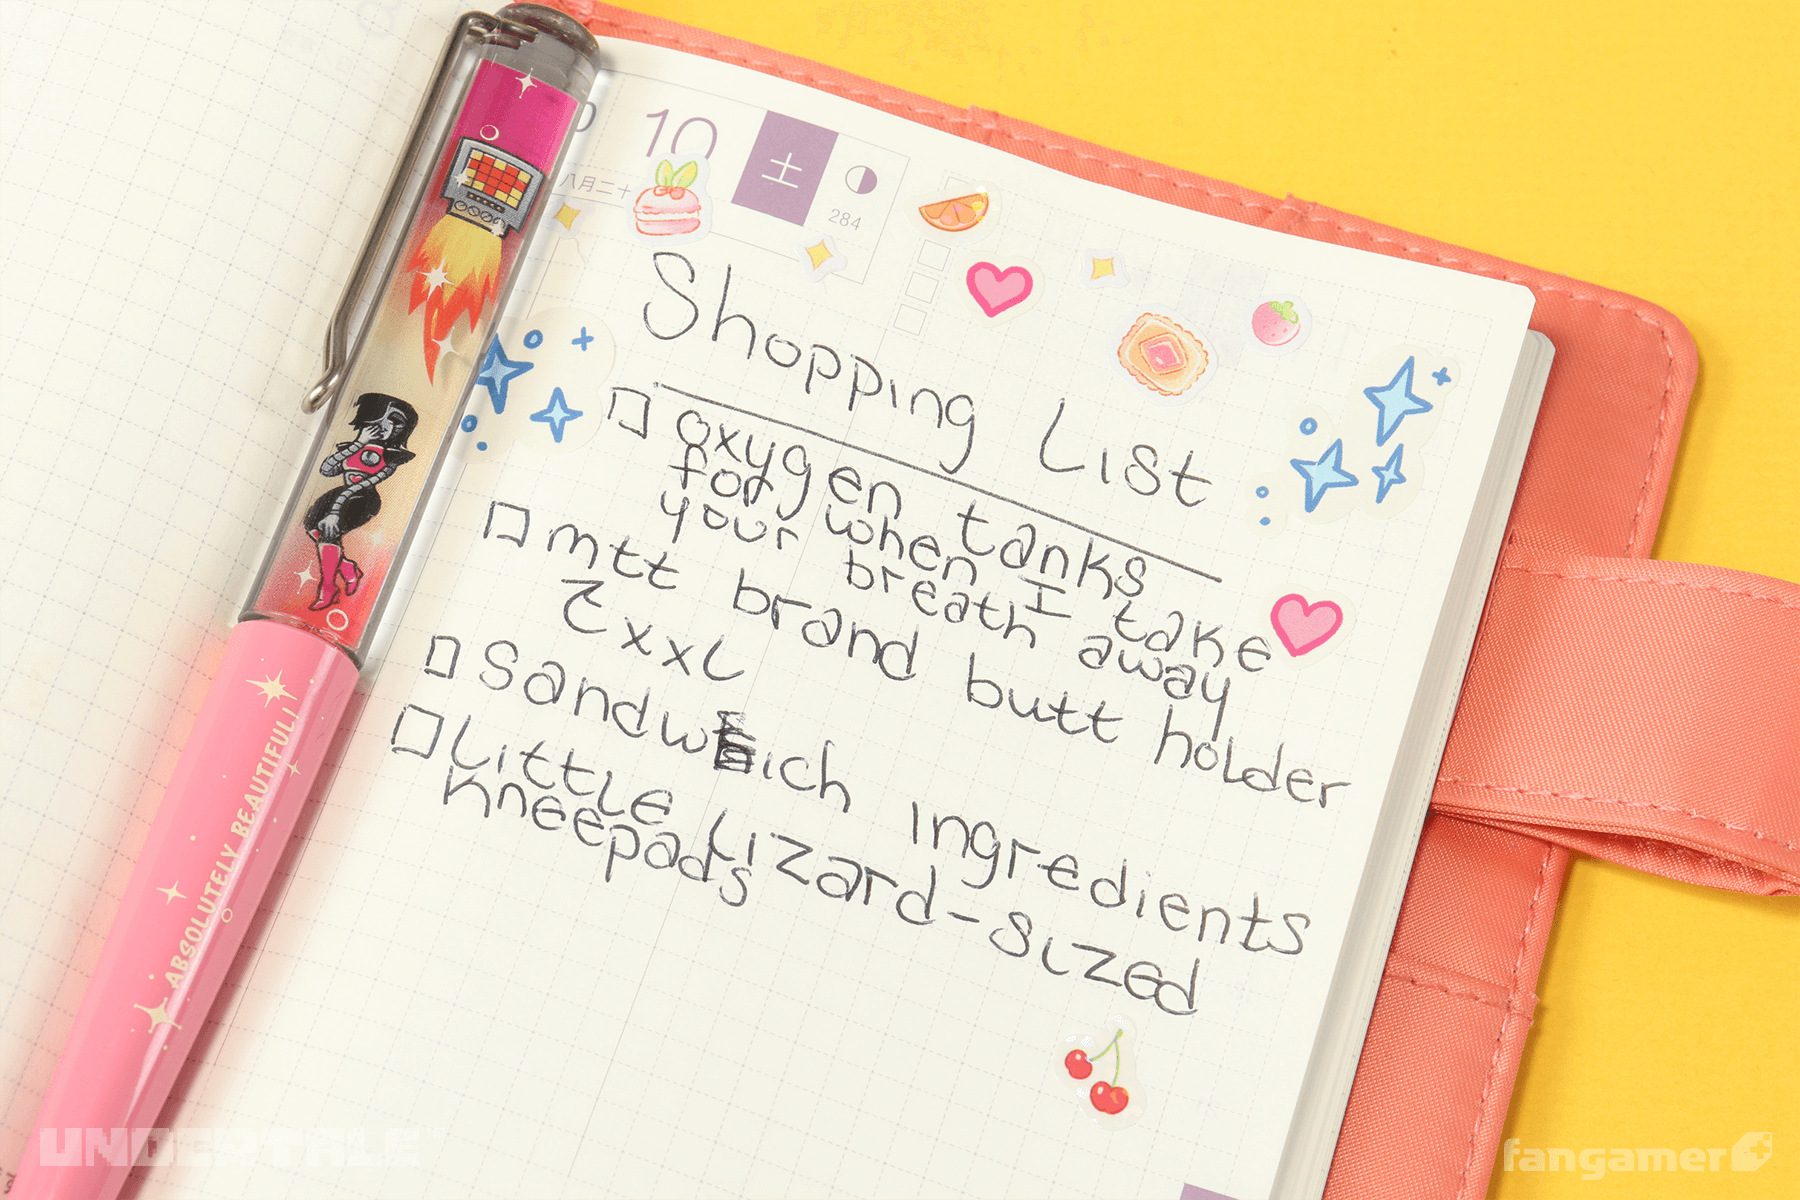 10
土
284
八月二十
Shopping List
oxygen tanks
for when I take
your breath away
mtt brand butt holder
Zxxl
Sandwich ingredients
Little lizard-sized
kneepads
ABSOLUTELY BEAUTIFUL!
UNDERTALE
fangamer